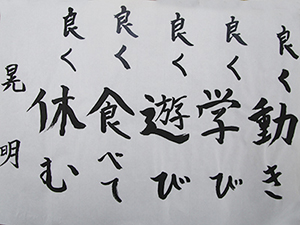 良く動き
良く学び
良く遊び
良く食べて
良く休む
晃明